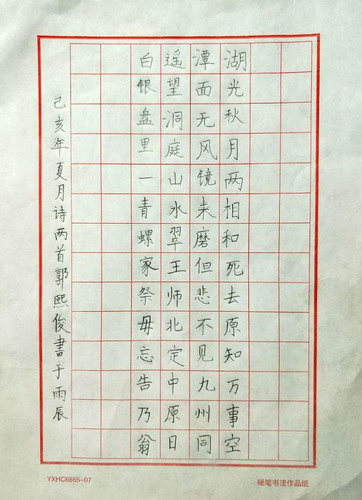 湖光秋月两相和死去原知万事空
潭面无风镜未磨但悲不见九州同
遥望洞庭山水翠王师北定中原日
白银盘里一青螺家祭毋忘告乃翁
己亥年夏月诗两首郭熙俊書于雨辰
YXHC6685-07
硬笔书法作品纸